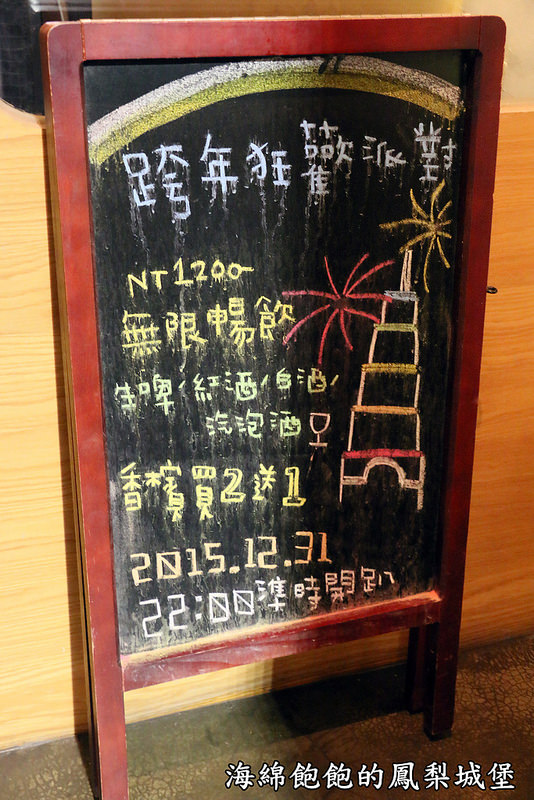 跨年狂歡派對
NT 1200-
無限暢飲
生啤/紅酒/白酒/
汽泡酒
香檳買2送1
2015.12.31
22:00準時開趴
海綿飽飽的鳳梨城堡